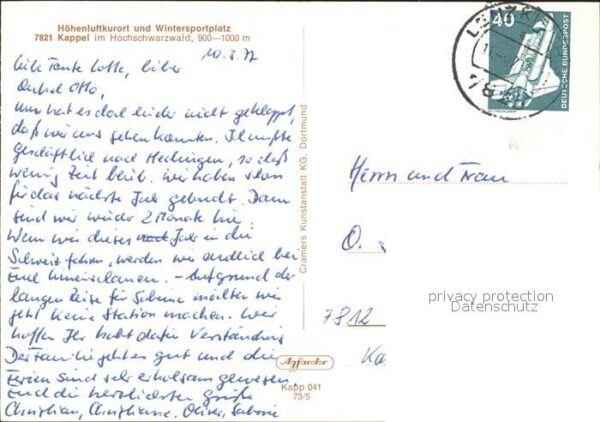 Höhenluftkurort und Wintersportplatz
7821 Kappel im Hochschwarzwald, 900—1000 m
10.8.77
Liebe Tante Lotte, lieber
Onkel Otto,
nun hat es doch leider nicht geklappt,
daß wir uns sehen konnten. Ich mußte
geschäftlich nach Hechingen, so daß
wenig Zeit blieb. Wir haben schon
für das nächste Jahr gebucht. Dann
sind wir wieder 2 Monate hier.
Wenn wir dieses Jahr in die
Schweiz fahren, werden wir endlich bei
Euch hineinschauen. – Aufgrund der
langen Reise für Sabine möchten wir
jetzt keine Station machen. Wir
hoffen Ihr habt dafür Verständnis
Der Familie geht es gut und die
Ferien sind sehr erholsam gewesen
Euch die herzlichsten Grüße
Christian, Christiane. Oliver, Sabine
Cramers Kunstanstalt KG, Dortmund
Agfacolor
Kapp 041
73/5
40
DEUTSCHE BUNDESPOST
LENZKI
Herrn und Frau
O.
7812
Ka
privacy protection
Datenschutz